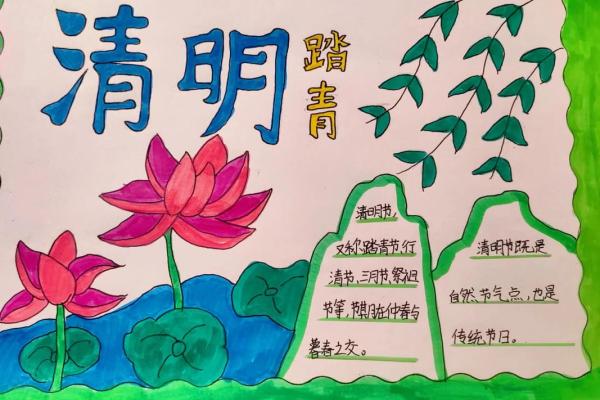 清明
踏青
清明节,
又称踏青节、行
清节、三月节、祭祖
节等,节期在仲春与
暮春之交。
清明节既是
自然节气点,也是
传统节日。